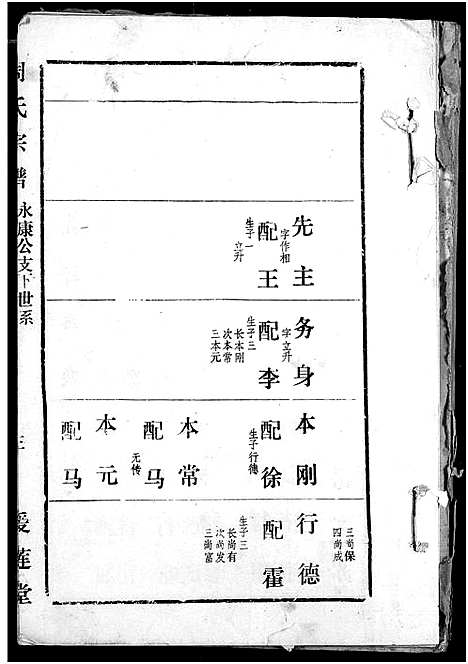 周氏宗谱 永康公支下世系
爱莲堂
先主 字作相
配王 生子一
立升
务身 字立升
配李 生子三
长本刚
次本常
三本元
本刚
配徐 生子行德
本常
配马 无传
本元
配马
三尚保
四尚成
行德
配霍 生子三
长尚有
次尚发
三尚富